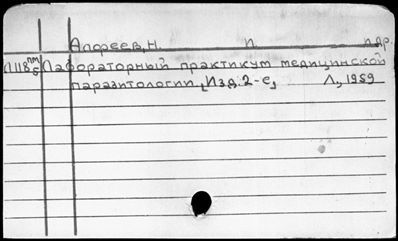 Алфеев, Н. И. и др.
Л118 пм/5 Лабораторный практикум медицинской
паразитологии [Изд. 2-е] Л., 1959